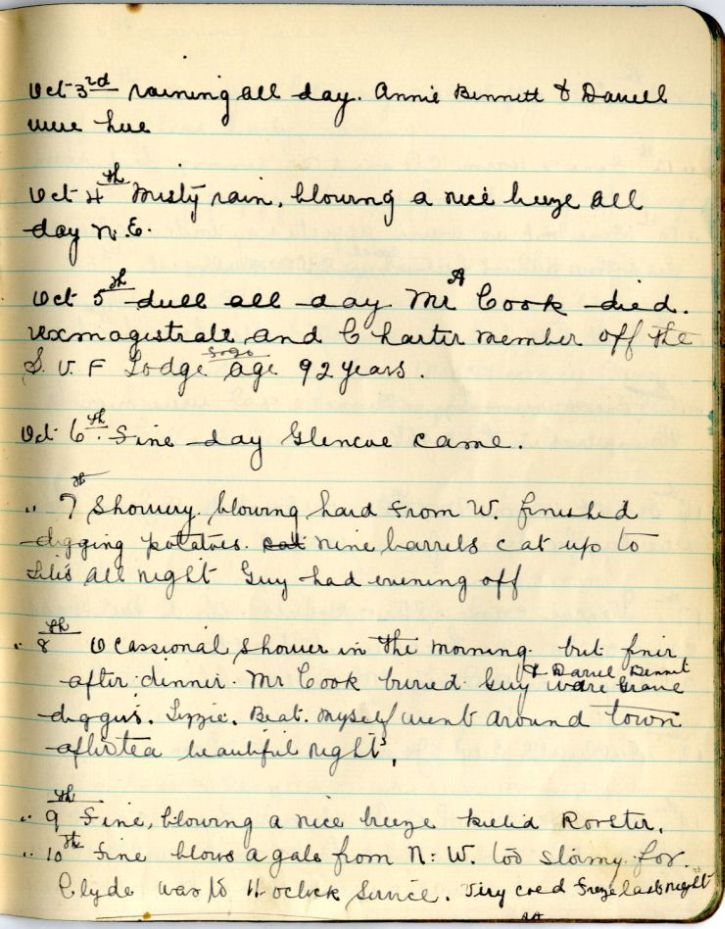 Oct 3rd raining all day. Annie Bennett & Darrell
were here
Oct 4th Misty rain, blowing a nice breeze all
day N.E.
Oct 5th dull all day Mr A Cook died.
exmagistrate and Charter member off the
S. U. F Lodge age 92 years.
Oct 6th. Fine day Glencoe came.
" 7th Showery. blowing hard from W. finished
digging potatoes. nine barrels cat up to
Lili's all night Guy had evening off
" 8th Ocassional shower in the morning. but finir
after dinner. Mr Cook buried Guy & Darrel Bennet were Grave
diggers. Lizzie. Beat. Myself went around town
after tea beautiful night.
" 9th Fine, blowing a nice breeze killed Rorster.
" 10th Fine blows a gale from N: W. too stormy for.
Clyde was to 11 oclock Service. Very coed Froze last night